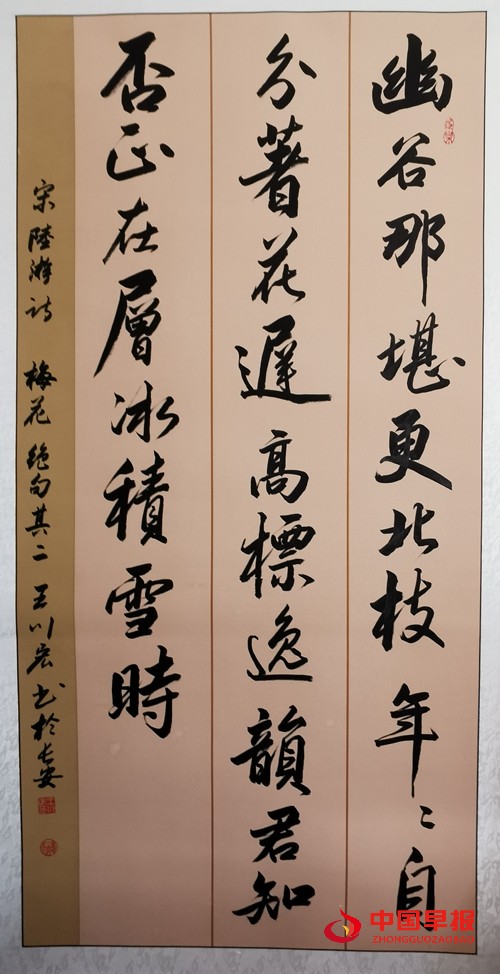 幽谷那堪更北枝年〻自
分著花遲高標逸韻君知
否正在層冰積雪時
宋陸游詩 梅花絕句其二 王川宏书於长安
中国早报
ZHONGGUOZAOBAO